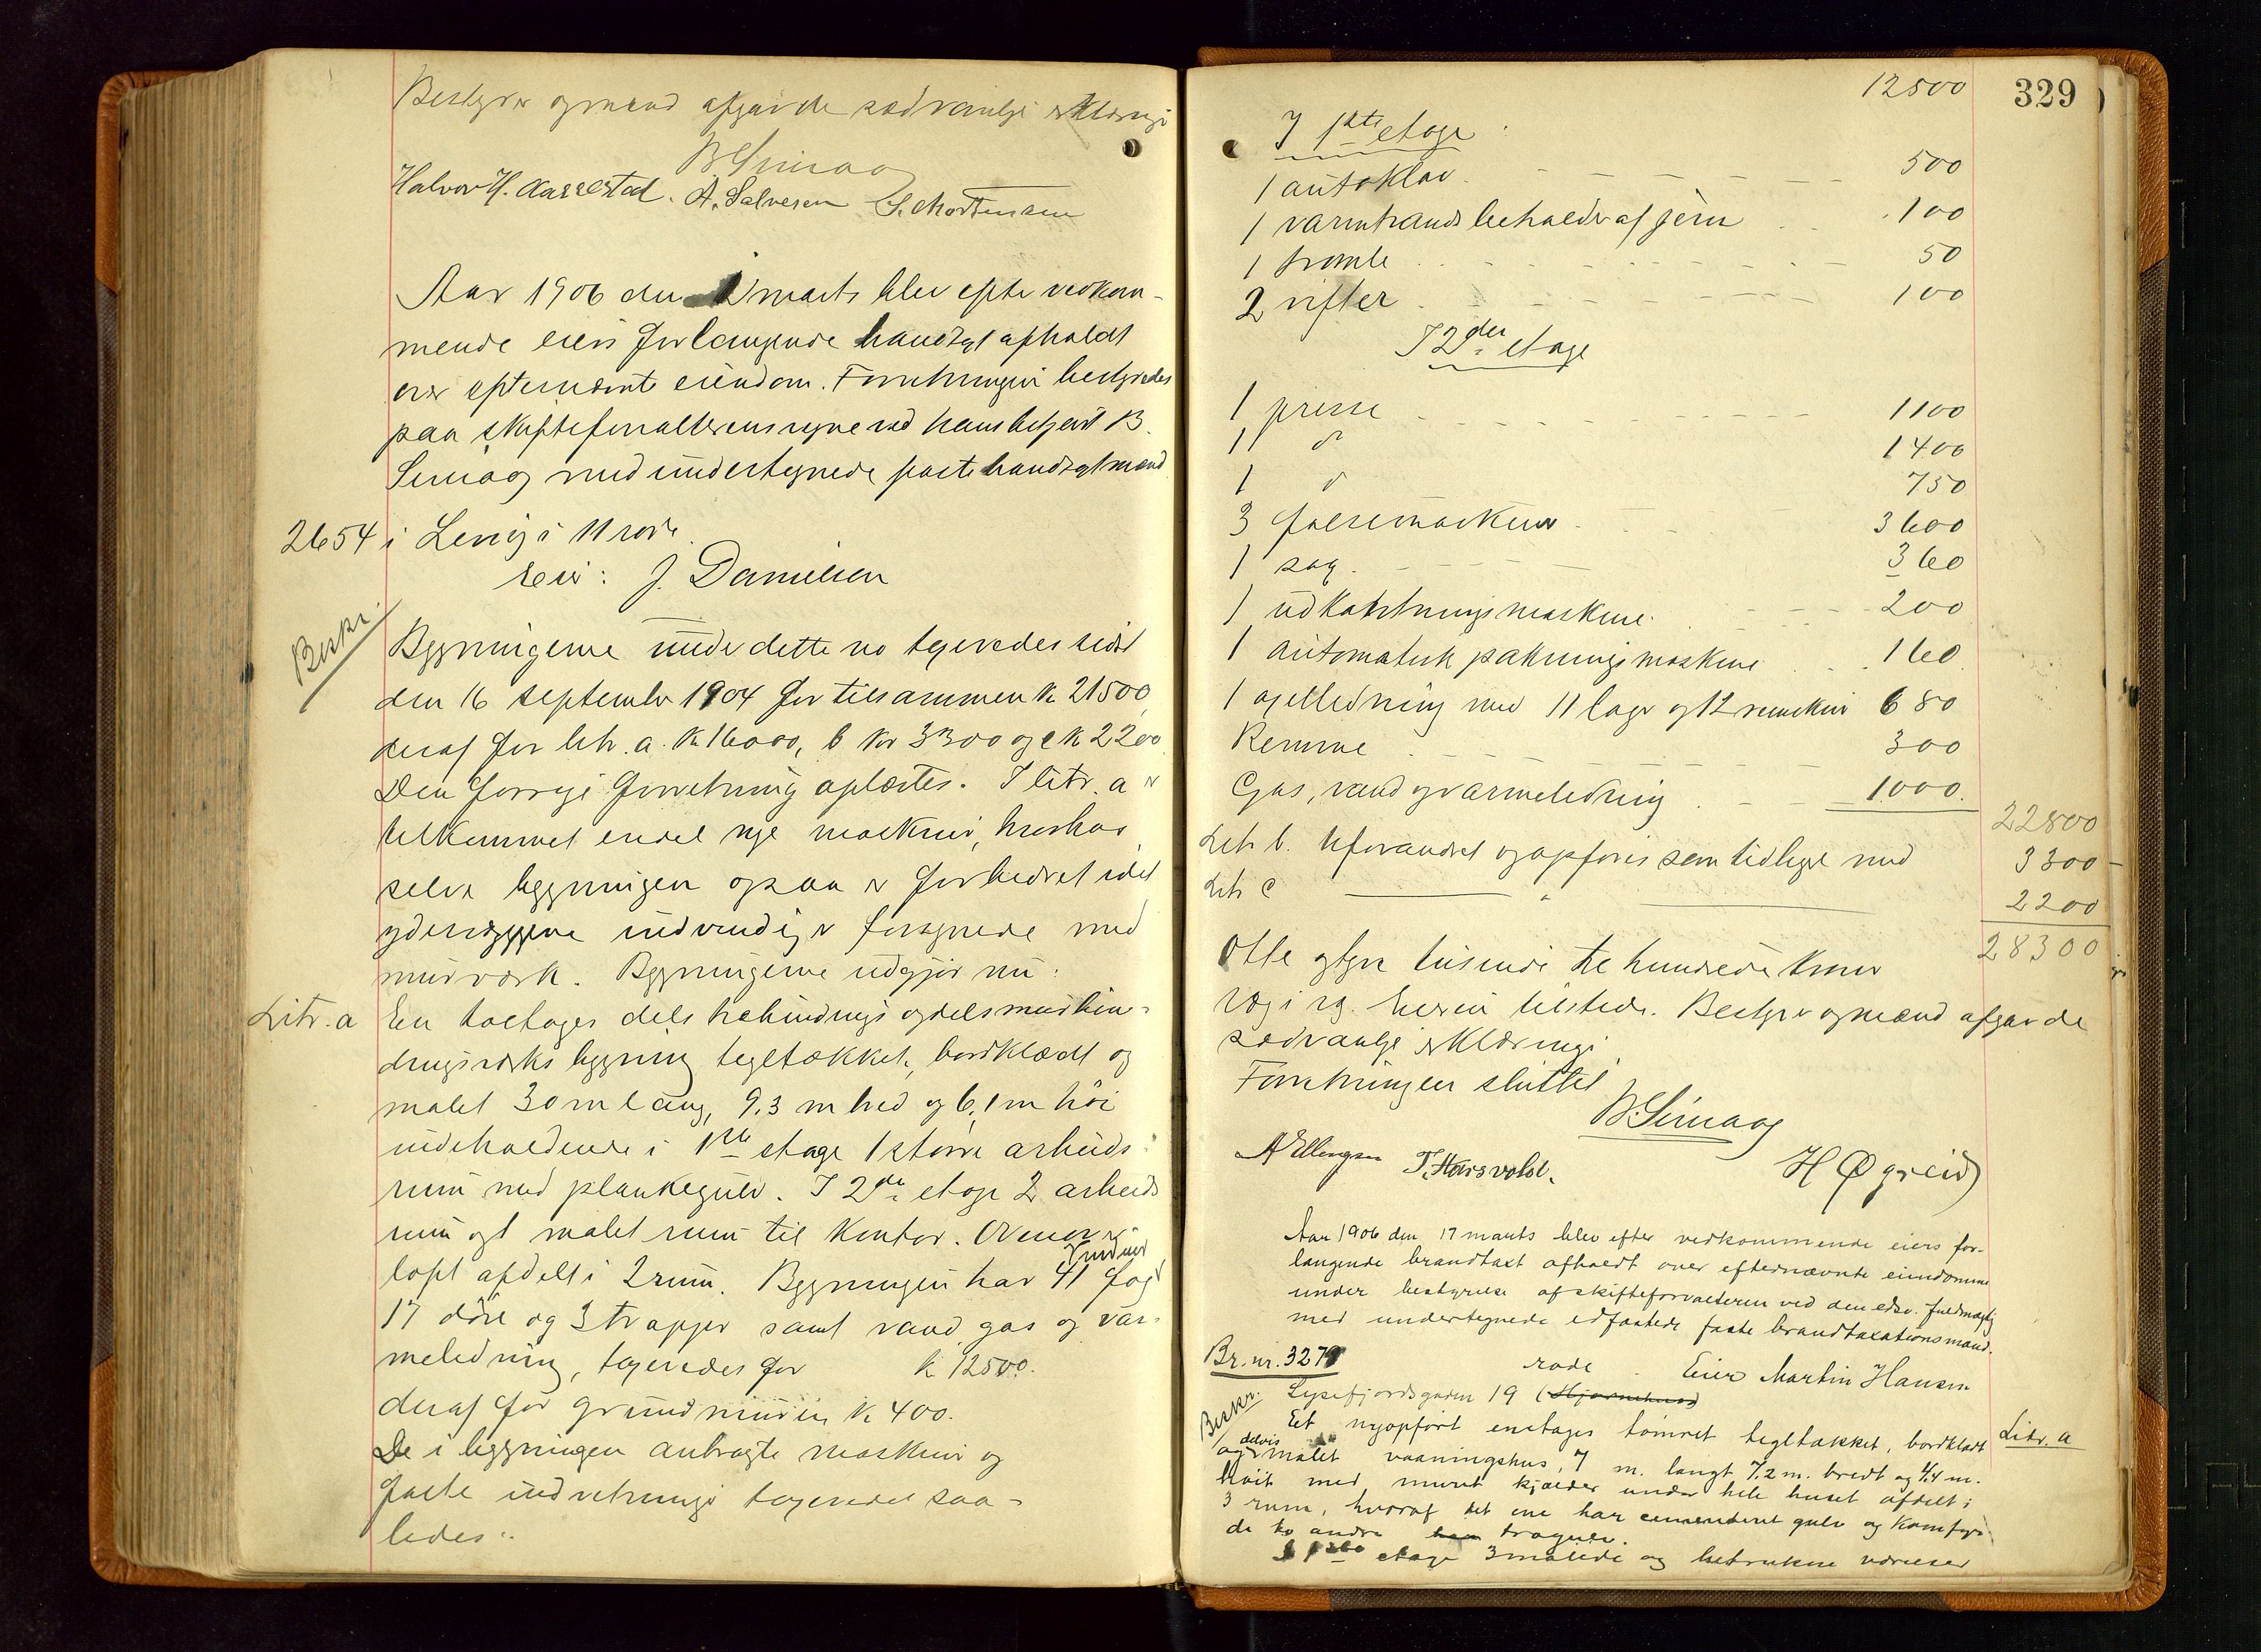 Bestyrer og mænd afgav de sædvanlige erklæringer
B Simaog
Halvor H. Aarrestad. A. Salvesen S. Mortensen
Aar 1906 den marts blev efter vedkom-
mende eiers forlangende brandtaxt afholdt
over efternævnte eiendom. Forretningen bestyredes
paa skifteforvalterens vegne ved hans betjent B.
Simaog med undertegnede faste brandtaxtmænd
2654 i Lervig i 11 rode.
Eier: J. Danielsen
Beskr.
Bygningerne under dette no taxeredes sidst
den 16 september 1904 for tilsammen kr 21500,
deraf for litr. a. kr 16000, b kr 3300 og c kr 2200
Den forrige forretning oplæstes. I litr. a er
tilkommet endel nye maskiner, hvorhos
selve bygningen ogsaa er forbedret idet
ydervæggene indvendig er forsynede med
murværk. Bygningerne udgjør nu:
Litr. a En toetages dels bebindings og dels murbin-
dingsverks bygning tegltækket, bordklædt og
malet 30 m lang, 9,3 m bred og 6,1 m høi
indeholdende i 1ste etage 1 større arbeids-
rum med plankegulv. I 2den etage 2 arbeids
rum og 1 malet rum til kontor. Ovenover
loft afdelt i 2 rum. Bygningen har 41 fag vinduer
17 døre og 3 trapper samt vand gas og var-
meledning, taxeredes for kr 12500.
deraf for grundmuren kr 400.
De i bygningen anbragte maskiner og
faste indretninger taxeredes saa-
ledes:
329
12500
I 1ste etage:
1 autoklav 500
1 varmtvandsbeholder af jern 100
1 tromle 50
2 vifter 100
I 2den etage
1 presse 1100
1 do 1400
1 do 750
3 falsemaskiner 3600
1 sag 360
1 udkantningsmaskine 200
1 automatisk pakningsmaskine 160
1 axelledning med 11 lager og 12 remskiver 680
Remme 300
Gas, vand og varmeledning 1000.
22800
Litr b. Uforandret og opføres som tidligere med 3300
Litr c " 2200
28300
Otte og tyve tusinde tre hundrede kroner
Vei i rg. Eieren tilstede. Bestyrer og mænd afgav de
sædvanlige erklæringer.
Forretningen sluttet
B. Simaog
A Ellingsen T. Haasvoldt. H Øgreid
Aar 1906 den 17 marts blev efter vedkommende eiers for-
langende brandtaxt afholdt over efternævnte eiendomme
under bestyrelse af skifteforvalteren ved den edsv. fuldmægtig
med undertegnede edfæstede faste brandtaxationsmænd.
Br. nr. 3279 rode. Eier Martin Hansen
Lysefjordsgaden 19 (Hjørnehus)
Beskr.
Et nyopført enetages tømret tegltækket, bordklædt Litr. a
og delvis malet vaaningshus, 7 m. langt 7.2 m. bredt og 4.4 m.
høit med muret kjælder under hele huset afdelt i
3 rum, hvoraf det ene har cementeret gulv og komfyr
de to andre har trægulv.
I 1ste etage 3 malede og betrukne værelser